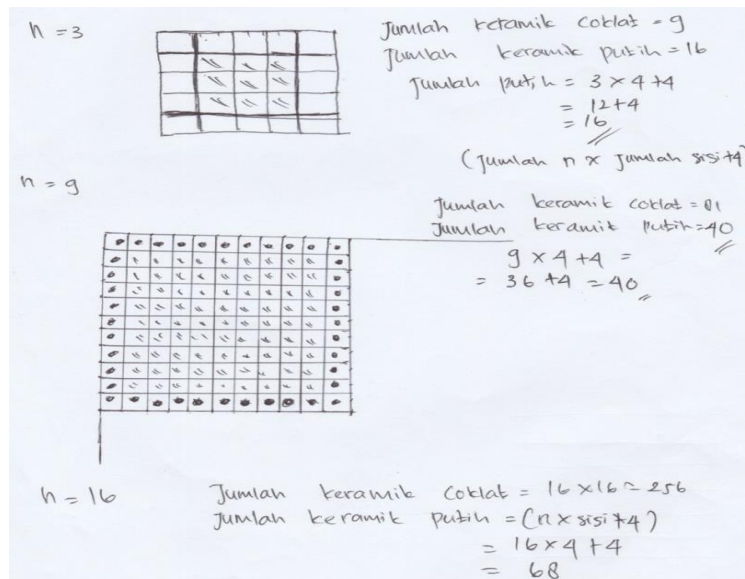 n = 3
Jumlah keramik coklat = 9
Jumlah keramik putih = 16
Jumlah putih = 3 x 4 + 4
= 12 + 4
= 16
(Jumlah n x jumlah sisi + 4)
n = 9
Jumlah keramik coklat = 81
Jumlah keramik putih = 40
9 x 4 + 4 =
= 36 + 4 = 40
n = 16
Jumlah keramik coklat = 16 x 16 = 256
Jumlah keramik putih = (n x sisi + 4)
= 16 x 4 + 4
= 68